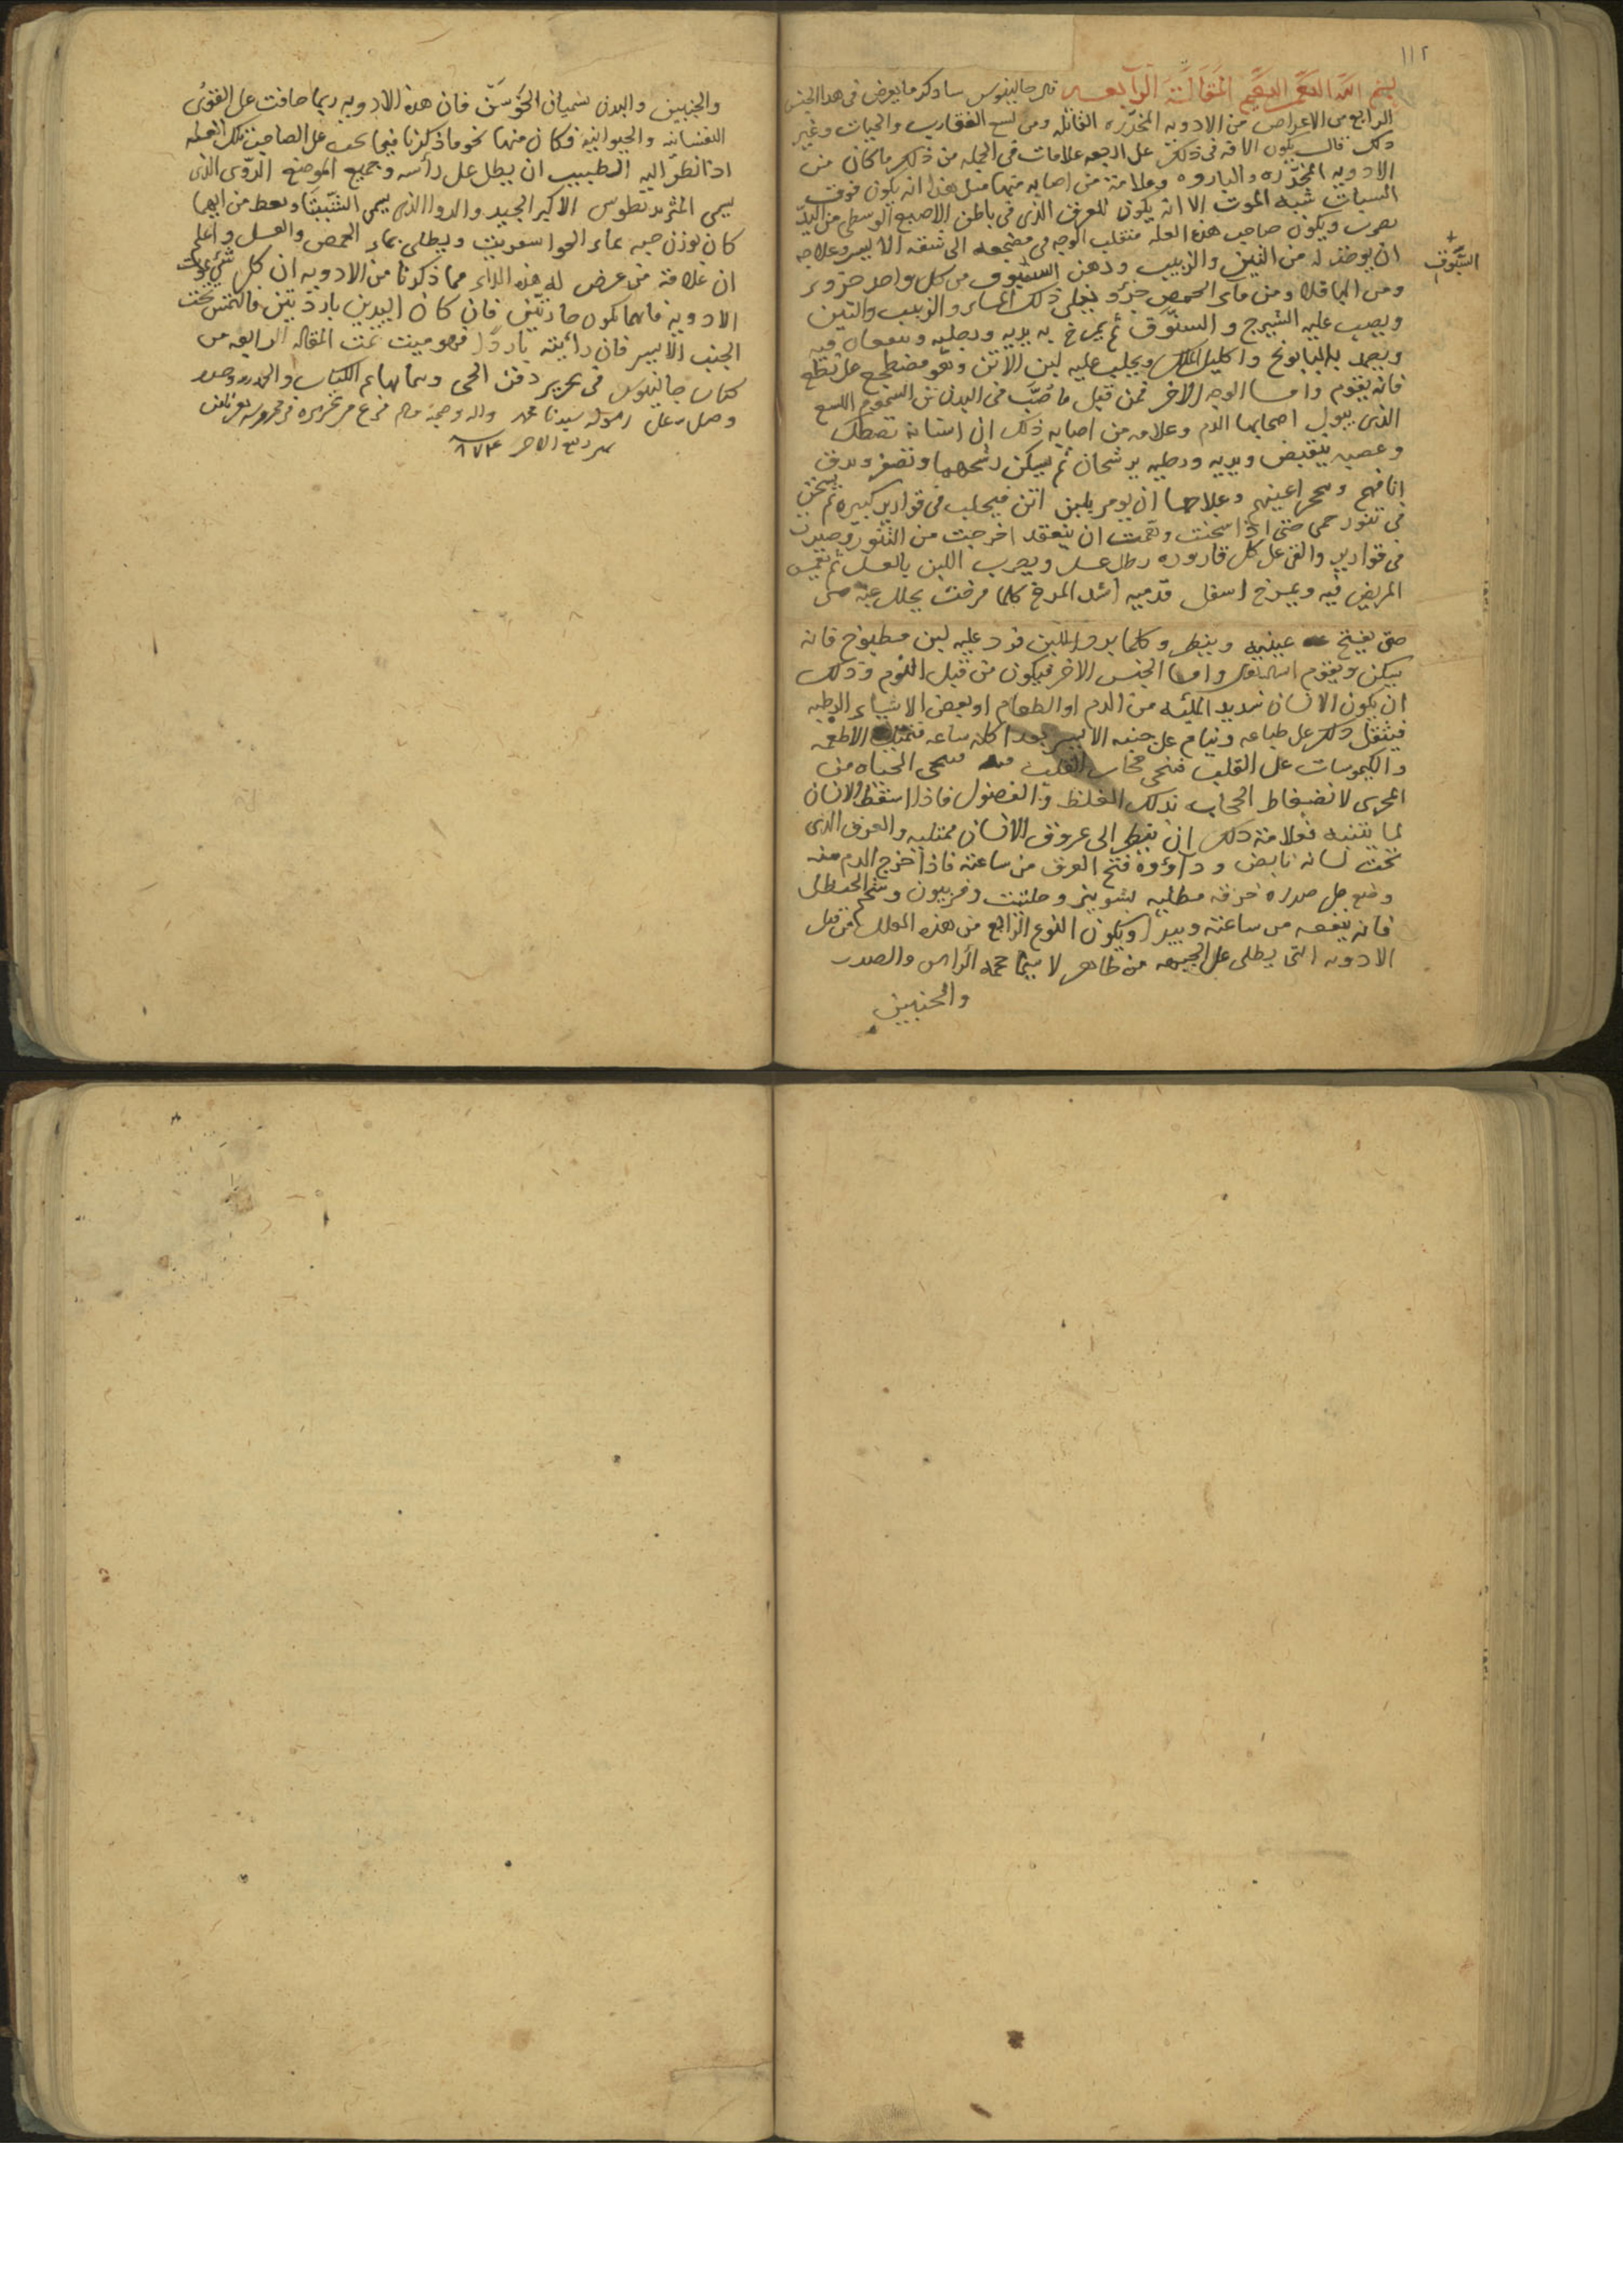 ١١٢
بسم الله الرحمن الرحيم المقالة الرابعه قال جالينوس سادكر ما يعرض في هدا الجنس
الرابع من الاعراض من الادويه المخدّره القاتله ومن لسع العقارب والحيات وغير
ذلك قال يكون الافه في ذلك على اربعه علامات في الجمله من ذلك ما كان من
الادويه المخدّره والبارده وعلامة من اصابه منها مثل هذا انه يكون فوق
السبات شبه الموت الا انه يكون للعرق الذى في باطن الاصبع الوسطى من اليد
يضرب ويكون صاحب هذه العله منقلب الوجه في مضجعه الى شقه الايسر وعلاجه
ان يوخذ له من التين والزبيب ودهن السنّوق من كل واحد جزو
السنّوق
ومن الباقلا ومن ماء الحمص جزو يغلى ذلك الماء والزبيب والتين
ويصب عليه الشيرج و السنّوق ثم يمرخ به يديه ورجليه
ويضمد بالبابونج واكليل الملك ويحلب عليه لبن الاتن وهو مضطجع على نطع
فانه يقوم واما الوجه الاخر فمن قبل ما صُبّ في البدن من السموم اللسع
الذى يبول اصحابها الدم وعلامه من اصابه ذلك ان اسنانه تصطك
وعصبه يتقبض ويديه ورجليه يرشحان ثم يسكن رشحهما وتصفر وبدق
انافهم وتحمر اعينهم وعلاجها ان يومر بلبن اتن فيحلب في قوارير كبيره ثم يسخن
في تنور حمى حتى اذا سخنت وهمت ان ينعقد اخرجت من التنور وصيرت
في قوارير والقى على كل قاروره رطل عسل ويضرب اللبن بالعسل ثم يغمس
المريض فيه ويمرخ اسفل قدميه اشد المرخ كلما مرخت يحلل عنه حتى
حتى يفتح عينيه وينظر وكلما برد اللبن فرد عليه لبن مطبوخ فانه
يسكن ويقوم واما الجنس الاخر فيكون من قبل النوم وذلك
ان يكون الانسان شديد الملئه من الدم او الطعام او بعض الاشياء الرطبه
فيثقل ذلك على طباعه وينام على جنبه الايسر بعد اكله ساعه الاطعمه
والكيموسات على القلب فتحمى القلب الحياه من
المجرى لانضغاط الحجاب بذلك الغلظ والفضول فاذا استقظ الانسان
لما يتنبه فعلامة ذلك ان ينظر الى عروق الانسان ممتليه والعرق الذى
تحت لسانه نابض ودآؤوه فتح العرق من ساعته فاذا اخرج الدم منه
وضع على صدره خرقه مطليه بشونيز وحلتيت وفربيون وشحم الحنظل
فانه ينفعه من ساعته ويبرا ويكون النوع الرابع من هذه العلل من قبل
الادويه التى يطلى على الجبهه من ظاهر لا سيما الراس والصدر
والجنبين
والجنبين والبدن فان هذه الادويه ربما حافت على القوى
النفسانيه والحيوانيه فكان منها نحو ما ذكرنا فيما يجب على الصاحب تلك العله
اذا نظر اليه الطبيب ان يطل على رأسه وجميع الموضع الدوّى الذى
يسمى المثريديطوس الاكبر الجيد والدوا الذى يسمى الشبيثا ويعط من ايهما
كان يوزن حبه بماء ويطلى بماء الحمص والعسل واعلم
ان علامة من عرض له هذه الداء مما ذكرنا من الادويه ان كل شى عولجت
الادويه فانهما يكون حارتين فان كان اليدين باردتين فالتمس تحت
الجنب الايسر فان رأيته باردًا فهو ميت تمت المقاله الرابعه من
كتاب جالينوس في تحريم دفن الحى وبتمامها تم الكتاب والحمد لله وحده
وصلى على رسوله سيدنا محمد واله وصحبه فرغ من تحريره
ربيع الاخر سنه ٨٧٤